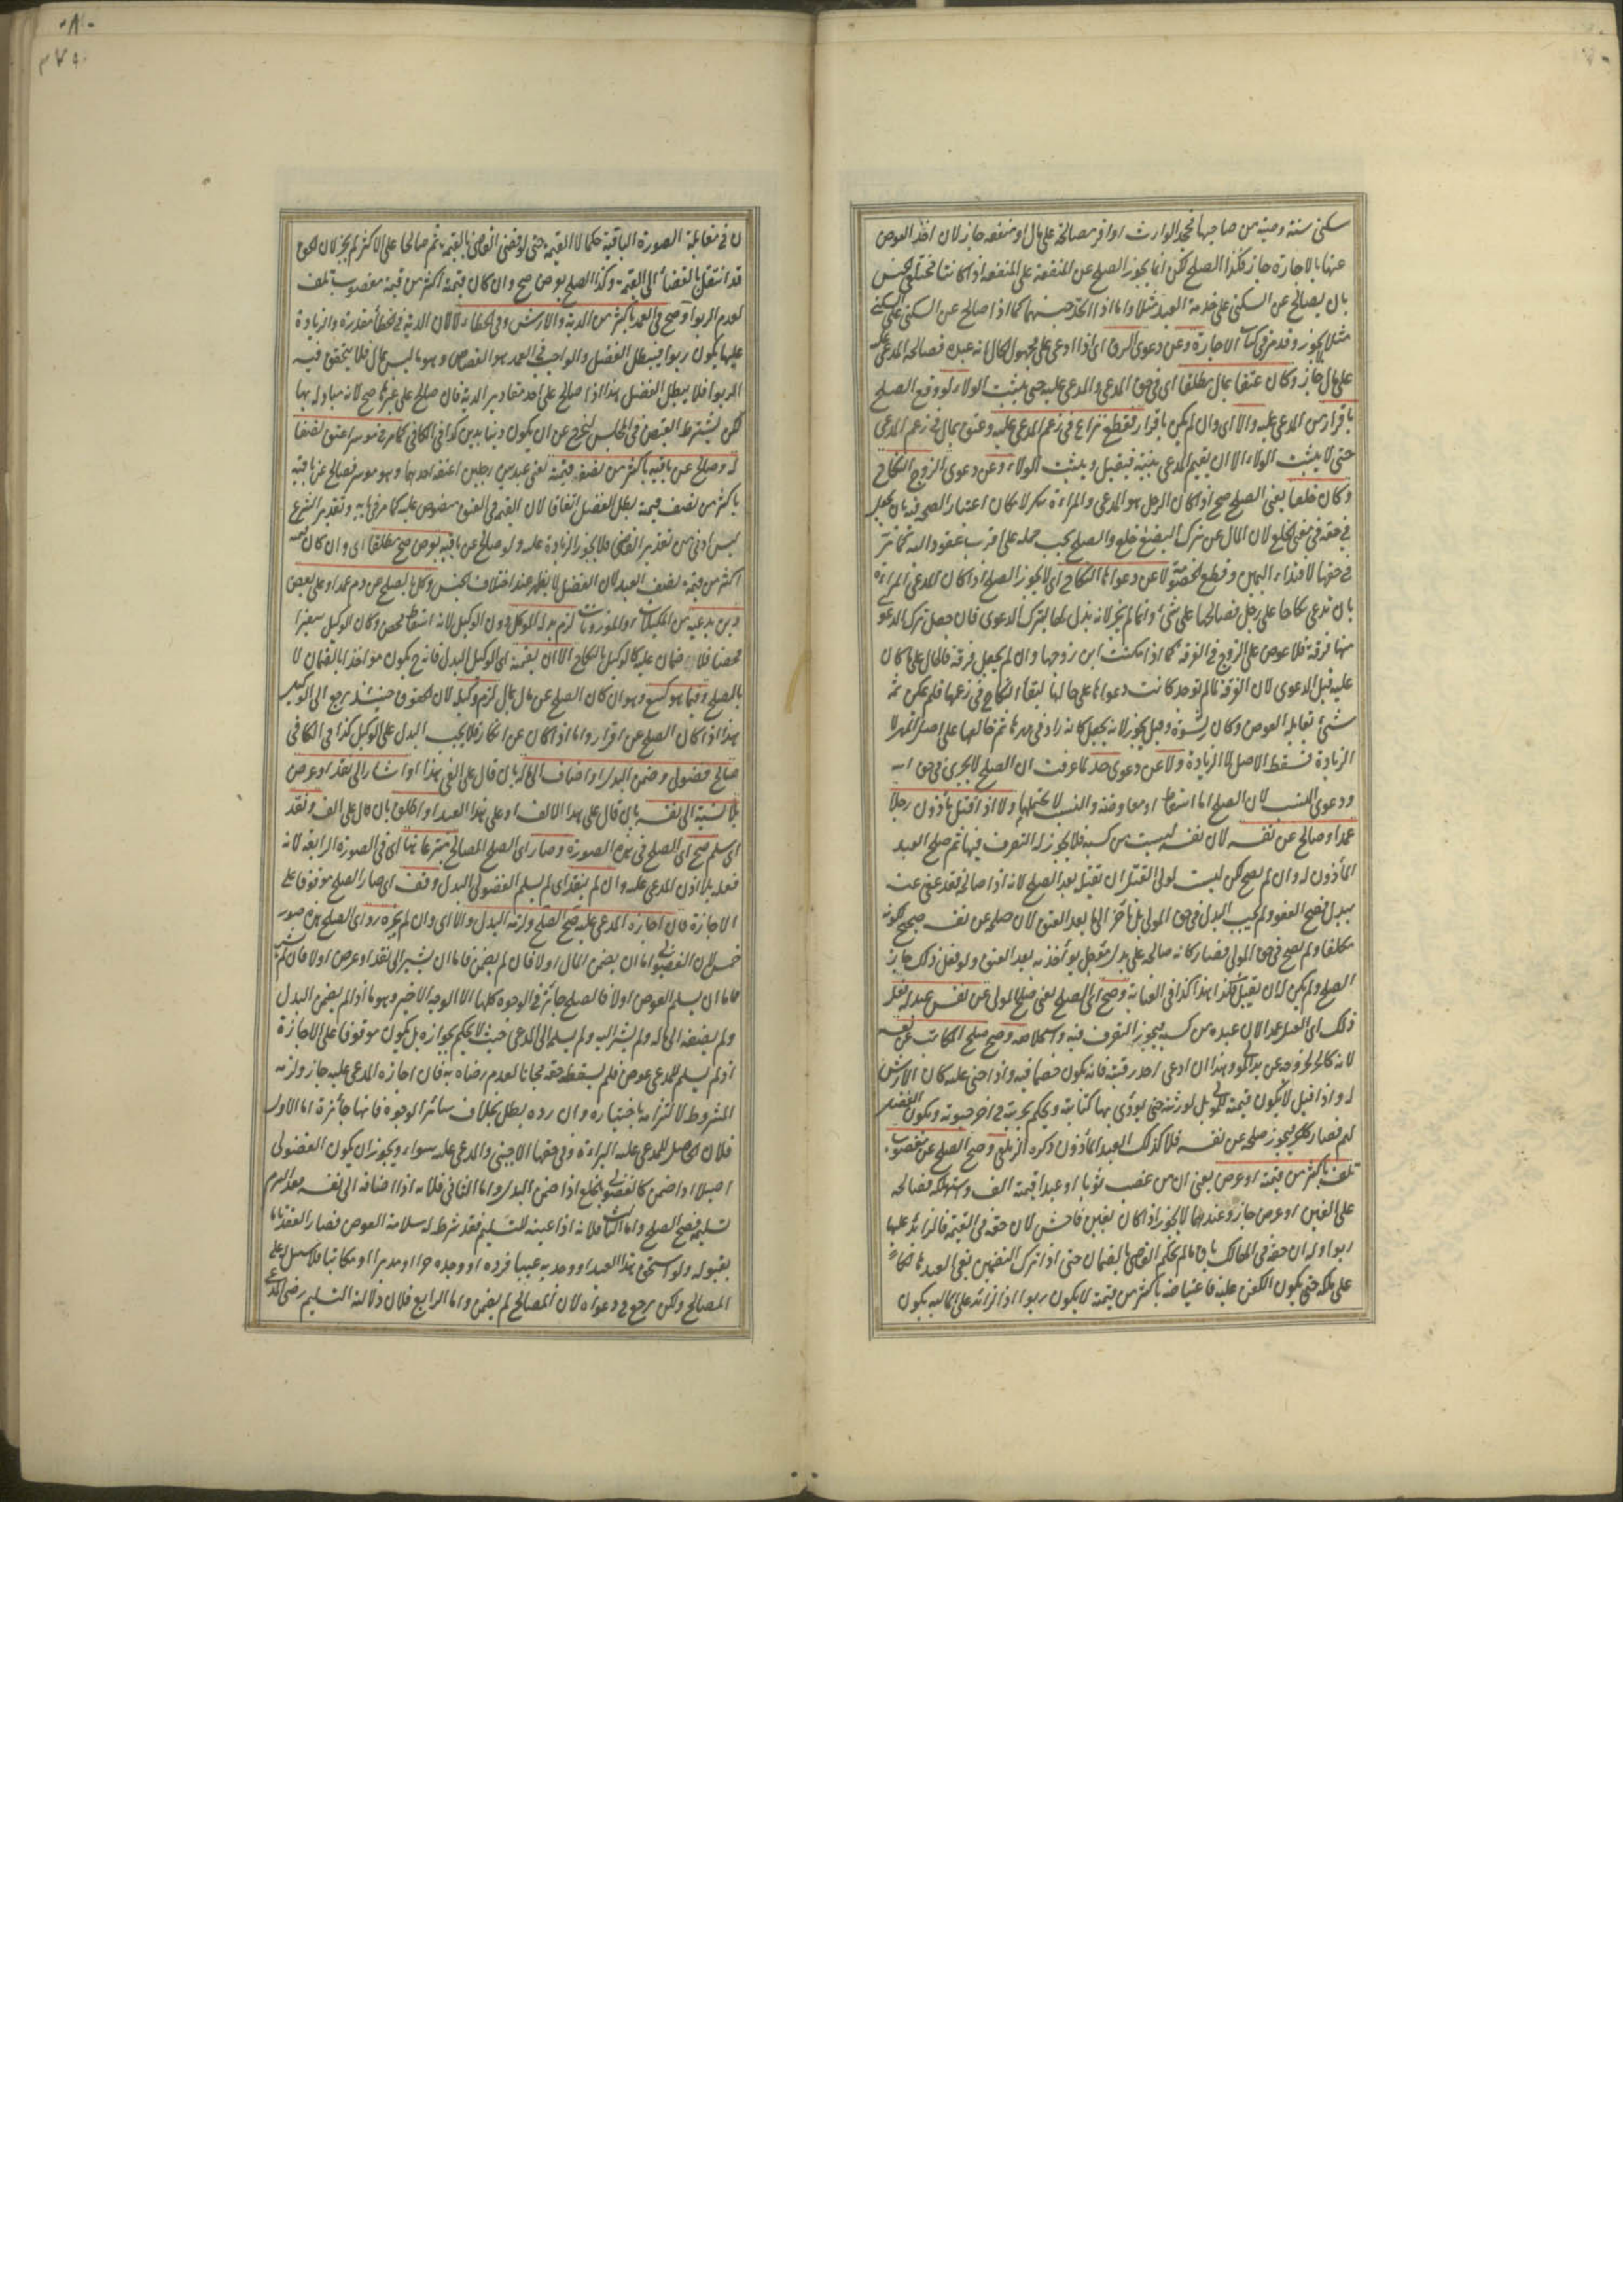 سكنى سنة وصية من صاحبها فجحد الوارث او اقر فصالحه على مال او منفعه جاز لان اخذ العوض
عنها بالاجارة جاز فكذا الصلح لكن انما يجوز الصلح عن المنفعة على المنفعه اذا كانتا مختلفى الجنس
بان يصالح عن السكنى على خدمة العبد مثلا واما اذا اتحد جنسهما كما اذا صالح عن السكنى على السكنى
مثلا لا يجوز وقد مر فى كتاب الاجارة وعن دعوى الرق اى اذا ادعى على مجهول الحال انه عبده فصالحه المدعى عليه
على مال جاز وكان عتقا بمال مطلقا اى فى حق المدعى والمدعى عليه حتى يثبت الولاء لو وقع الصلح
باقرار من المدعى عليه والا اى وان لم يكن باقرار فقطع نزاع فى زعم المدعى عليه وعتق بمال فى زعم المدعى
حتى لا يثبت الولاء الا ان يقيم المدعى بينة فيقبل ويثبت الولاء وعن دعوى الزوج النكاح
وكان خلعا يعنى الصلح صح اذا كان الرجل هو المدعى والمراءة تنكر لامكان اعتبار الصحه فيه بان يجعل
فى حقه فى معنى الخلع لان المال عن ترك البضع خلع والصلح يجب حمله على اقرب عقود اليه كما مر
فى حقها لافتداء اليمين وقطع الخصومة لا عن دعواها النكاح اى لا يجوز الصلح اذا كان المدعى المراءة
بان تدعى نكاحا على رجل فصالحها على شئ وانما لم يجز لانه بذل لها لترك الدعوى فان جعل ترك الدعوى
منها فرقة فلا عوض على الزوج فى الفرقة كما اذا مكنت ابن زوجها وان لم يجعل فرقة فالحال على ما كان
عليه قبل الدعوى لان الفرقة لما لم توجد كانت دعواها على حالها لبقاء النكاح فى زعمها فلم يكن ثمه
شئ تقابله العوض وكان رشوة وقيل يجوز لانه يجعل كانه زاد فى مهرها ثم خالعها على اصل المهر لا
الزيادة فسقط الاصل لا الزيادة ولا عن دعوى حد لما عرفت ان الصلح لا يجرى فى حق الله
ودعوى النسب لان الصلح اما اسقاط او معاوضه والنسب لا يحتملها ولا اذا قتل مأذون رجلا
عمدا وصالح عن نفسه لان نفسه ليست من كسبه فلا يجوز له التصرف فيها ثم صلح العبد
المأذون له وان لم يصح لكن ليست لولى القتيل ان يقتله بعد الصلح لانه اذا صالحه فقد عفى عنه
ببدل فصح العفو ولم يجب البدل فى حق المولى بل تأخر الى ما بعد العتق لان صلحه عن نفسه صحيح لكونه
مكلفا ولم يصح فى حق المولى فصار كانه صالحه على بدل مؤجل يؤخذ به بعد العتق ولو فعل ذلك جاز
الصلح ولم يكن له ان يقتله فكذا هذا كذا فى العناية وصح اى الصلح يعنى صلح المولى عن نفس عبد له فعل
ذلك اى القتل عمدا لان عبده من كسبه فيجوز التصرف فيه واستخلاصه وصح صلح المكاتب عن نفسه
لانه كالحر لخروجه عن يد المولى ولهذا ان ادعى احد رقبته فانه يكون خصما فيه واذا جنى عليه كان الارش
له واذا قتل لا يكون قيمته للمولى بل لورثته حتى يؤدى بها كتابته ويحكم بحريته فى اخر حيوته ويكون الفضل
لهم فصار كالحر فيجوز صلحه عن نفسه فلا كذلك العبد المأذون ذكره الزيلعى وصح الصلح عن مغصوب
تلف باكثر من قيمته او عرض يعنى ان من غصب ثوبا او عبدا قيمته الف واستهلكه فصالحه
على الفين او عرض جاز وعندهما لا يجوز اذا كان بغبن فاحش لان حقه فى القيمة فالزائد عليها
ربوا وله ان حقه فى الهالك باق ما لم يحكم القاضى بالضمان حتى اذا ترك التضمين بقى العبد هالكا
على ملكه حتى يكون الكفن عليه فاعتياضه باكثر من قيمته لا يكون ربوا اذ الزائد على المالية يكون
ن فى مقابلة الصورة الباقية حكما لا القيمة حتى لو قضى القاضى بالقيمة ثم صالحا على الاكثر لم يجز لان الحق
قد انتقل بالقضاء الى القيمة وكذا الصلح بعوض صح وان كان قيمته اكثر من قيمة مغصوب تلف
لعدم الربوا وصح فى العمد باكثر من الدية والارش وفى الخطاء لا لان الدية فى الخطأ مقدرة والزيادة
عليها يكون ربوا فيبطل الفضل والواجب فى العمد هو القصاص وهو ما ليس بمال فلا يتحقق فيه
الربوا فلا يبطل الفضل هذا اذا صالح على احد مقادير الدية فان صالح على غيرها صح لانه مبادلة بها
لكن يشترط القبض فى المجلس ليخرج عن ان يكون دينا بدين كذا فى الكافى كما مر فى موسر اعتق نصفا
له وصالح عن باقيه باكثر من نصف قيمته يعنى عبد بين رجلين اعتقه احدهما وهو موسر فصالح عن باقيه
باكثر من نصف قيمته بطل الفضل اتفاقا لان القيمة فى العتق منصوص عليه كما مر فى بابه وتقدير الشرع
ليس ادنى من تقدير القاضى فلا يجوز الزيادة عليه ولو صالح عن باقيه بعوض صح مطلقا اى وان كان قيمته
اكثر من قيمة نصف العبد لان الفضل لا يظهر عند اختلاف الجنس وكل بالصلح عن دم عمدا وعلى بعض
دين يدعيه من المكيلات والموزونات لزم بدله الموكل دون الوكيل لانه اسقاط محض وكان الوكيل سفيرا
محضا فلا ضمان عليه كالوكيل بالنكاح الا ان يضمنه اى الوكيل البدل فانه ح يكون مواخذا بالضمان لا
بالصلح وفيما هو كبيع وهو ان كان الصلح عن مال بمال لزم وكيله لان الحقوق حينئذ يرجع الى الوكيل
هذا اذا كان الصلح عن اقرار واما اذا كان عن انكار فلا يجب البدل على الوكيل كذا فى الكافى
صالح فضولى وضمن البدل او اضاف الى ماله بان قال على الفى هذا او اشار الى نقد او عرض
بلا نسبة الى نفسه بان قال على هذا الالف او على هذا العبد او اطلق بان قال على الف ونقد
اى سلم صح اى الصلح فى هذه الصورة وصار اى الصلح المصالح متبرعا بها اى فى الصورة الرابعة لانه
فعله بلا اذن المدعى عليه وان لم ينقد اى لم يسلم الفضولى البدل وقف اى صار الصلح موقوفا على
الاجازة فان اجازه المدعى عليه صح الصلح ولزمه البدل والا اى وان لم يجزه رد اى الصلح هذه صور
خمس لان الفضولى اما ان يضمن المال او لا فان لم يضمن فاما ان يشير الى نقد او عرض او لا فان لم يشر
فاما ان يسلم العوض او لا فالصلح جائز فى الوجوه كلها الا الوجه الاخير وهو ما اذا لم يضمن البدل
ولم يضفه الى ماله ولم يشر اليه ولم يسلم الى المدعى حيث لا يحكم بجوازه بل يكون موقوفا على الاجازة
اذ لم يسلم للمدعى عوض فلم يسقط حقه مجانا لعدم رضاه به فان اجازه المدعى عليه جاز ولزمه
المشروط لالتزامه باختياره وان رده بطل بخلاف سائر الوجوه فانها جائزة اما الاول
فلان الحاصل للمدعى عليه البراءة وفى حقها الاجنبى والمدعى عليه سواء ويجوز ان يكون الفضولى
اصيلا اذا ضمن كالفضولى بالخلع اذا ضمن البدل واما الثانى فلانه اذا اضافه الى نفسه فقد التزم
تسليمه فصح الصلح واما الثالث فلانه اذا عينه للتسليم فقد شرط له سلامة العوض فصار العقد تاما
بقبوله ولو استحق هذا العبد او وجد به عيبا فرده او وجده حرا او مدبرا او مكاتبا فلا سبيل له على
المصالح ولكن يرجع فى دعواه لان المصالح لم يضمن واما الرابع فلان دلالة التسليم رضى المدعى